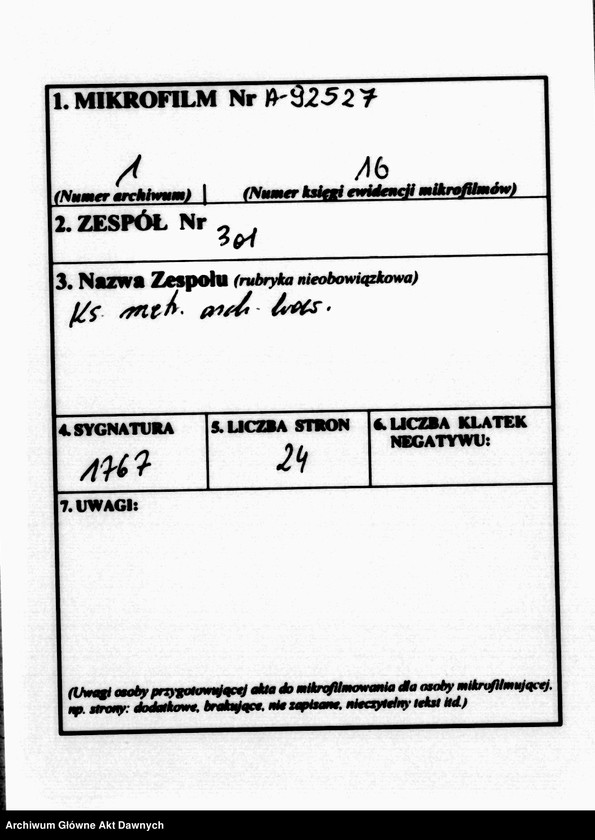 1. MIKROFILM Nr A-92527
1 16
(Numer archiwum) (Numer księgi ewidencji mikrofilmów)
2. ZESPÓŁ Nr 301
3. Nazwa Zespołu (rubryka nieobowiązkowa)
Ks. metr. arch.
4. SYGNATURA 5. LICZBA STRON 6. LICZBA KLATEK
NEGATYWU:
1767 24
7. UWAGI:
(Uwagi osoby przygotowującej akta do mikrofilmowania dla osoby mikrofilmującej,
np. strony: dodatkowe, brakujące, nie zapisane, nieczytelny tekst itd.)
Archiwum Główne Akt Dawnych